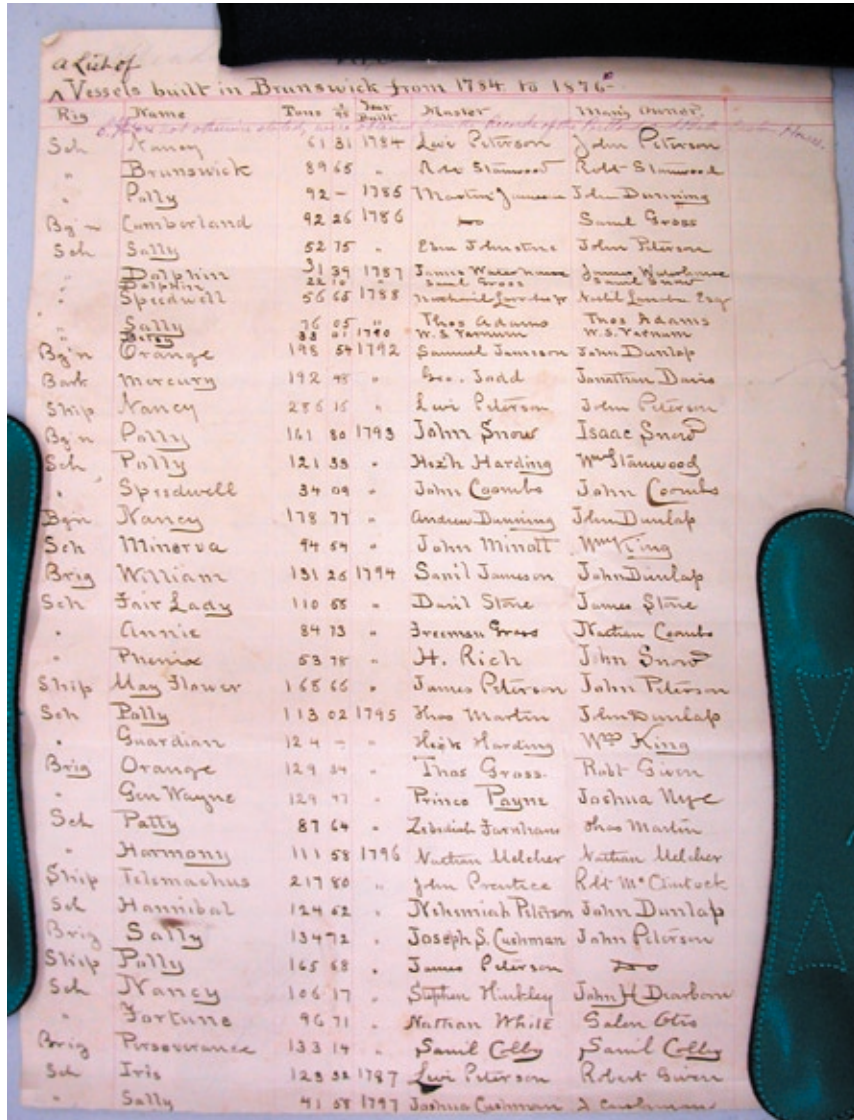 a List of
Vessels built in Brunswick from 1784 to 1876
Rig Name Tons 95 Year Built Master Main Owner
not otherwise stated, were obtained from the Records of the
Sch Nancy 61 31 1784 Levi Peterson John Peterson
" Brunswick 89 65 " Stanwood Robt Stanwood
" Polly 92 - 1785 Martin Jameson John Dunning
Bg'n Cumberland 92 26 1786 Do Saml Gross
Sch Sally 52 75 " Eben Johnstone John Peterson
" Dolphin 31 39 1787 James Waterhouse James Waterhouse
" Dolphin 22 10 " Saml Gross Saml Snow
" Speedwell 56 65 1788 Nathl Esq
" Sally 76 05 " Thos Adams Thos Adams
" Betsy 1790 W.S. Vernum W.S. Vernum
Bg'n Orange 198 54 1792 Samuel Jameson John Dunlap
Bark Mercury 192 " Geo. Todd Jonathan Davis
Ship Nancy 286 15 " Levi Peterson John Peterson
Bg'n Polly 161 80 1793 John Snow Isaac Snow
Sch Polly 121 33 " Hez'h Harding Wm Stanwood
" Speedwell 34 09 " John Coombs John Coombs
Bgn Nancy 178 77 " Andrew Dunning John Dunlap
Sch Minerva 94 54 " John Minott Wm King
Brig William 131 26 1794 Sam'l Jameson John Dunlap
Sch Fair Lady 110 " Dan'l Stone James Stone
" Annie 84 73 " Freeman Gross Nathan Coombs
" Phenix 53 78 " H. Rich John Snow
Ship May Flower 165 66 " James Peterson John Peterson
Sch Polly 113 02 1795 Thos Martin John Dunlap
" Guardian 124 - " Hezk Harding Wm King
Brig Orange 129 34 " Thos Gross. Robt Given
" Gen Wayne 129 " Prince Payne Joshua Nye
Sch Patty 87 64 " Zebediah Farnham Thos Martin
" Harmony 111 58 1796 Nathan Melcher Nathan Melcher
Ship Telemachus 217 80 " John Prentice Robt McClintock
Sch Hannibal 124 62 " Nehemiah Peterson John Dunlap
Brig Sally 134 72 " Joseph S. Cushman John Peterson
Ship Polly 165 68 " James Peterson Do
Sch Nancy 106 17 " Stephen Hinkley John H Dearborn
" Fortune 96 71 " Nathan White Galen Otis
Brig Perseverance 133 14 " Sam'l Colby Sam'l Colby
Sch Iris 123 32 1787 Levi Peterson Robert Given
" Sally 41 58 1797 Joshua Cushman J Cushman